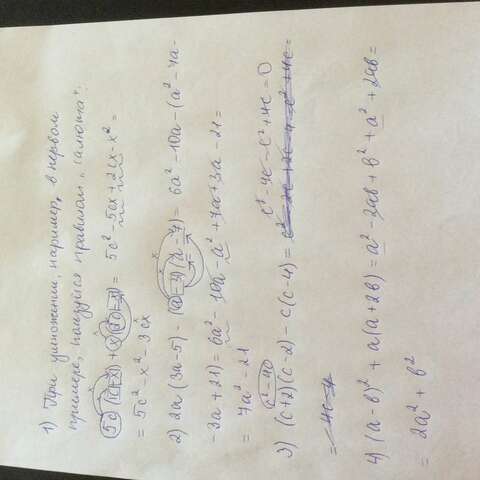 1) При умножении, например, в первом
примере, пользуйся правилом „салюта“.
5c(c-x)+x(2c-x) = 5c² - 5cx + 2cx - x² =
= 5c² - x² - 3cx
2) 2a(3a-5) - (a-3)(a-7) = 6a² - 10a - (a² - 7a -
- 3a + 21) = 6a² - 10a - a² + 7a + 3a - 21 =
= 7a² - 21
c²-4c
3) (c+2)(c-2) - c(c-4) = c² - 4c - c² + 4c = 0
4) (a-b)² + a(a+2b) = a² - 2ab + b² + a² + 2ab =
= 2a² + b²